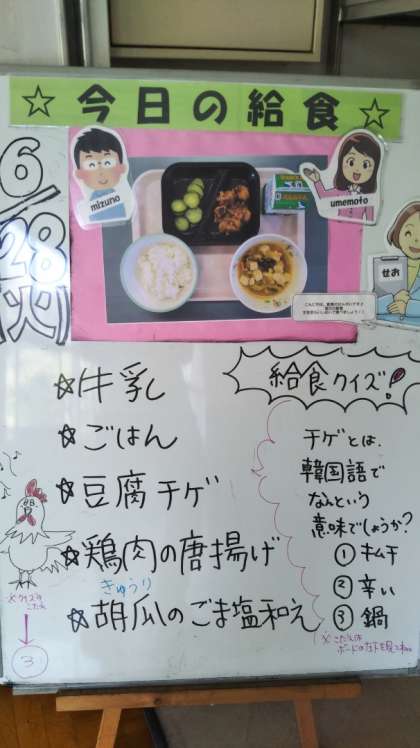 ☆今日の給食☆
6/28(火)
mizuno
umemoto
せお
☆牛乳
☆ごはん
☆豆腐チゲ
☆鶏肉の唐揚げ
きゅうり
☆胡瓜のごま塩和え
給食クイズ!
チゲとは、
韓国語で
なんという
意味でしょうか?
① キムチ
② 辛い
③ 鍋
※こたえは
ボードの左下を見てね
※クイズの
こたえ
③